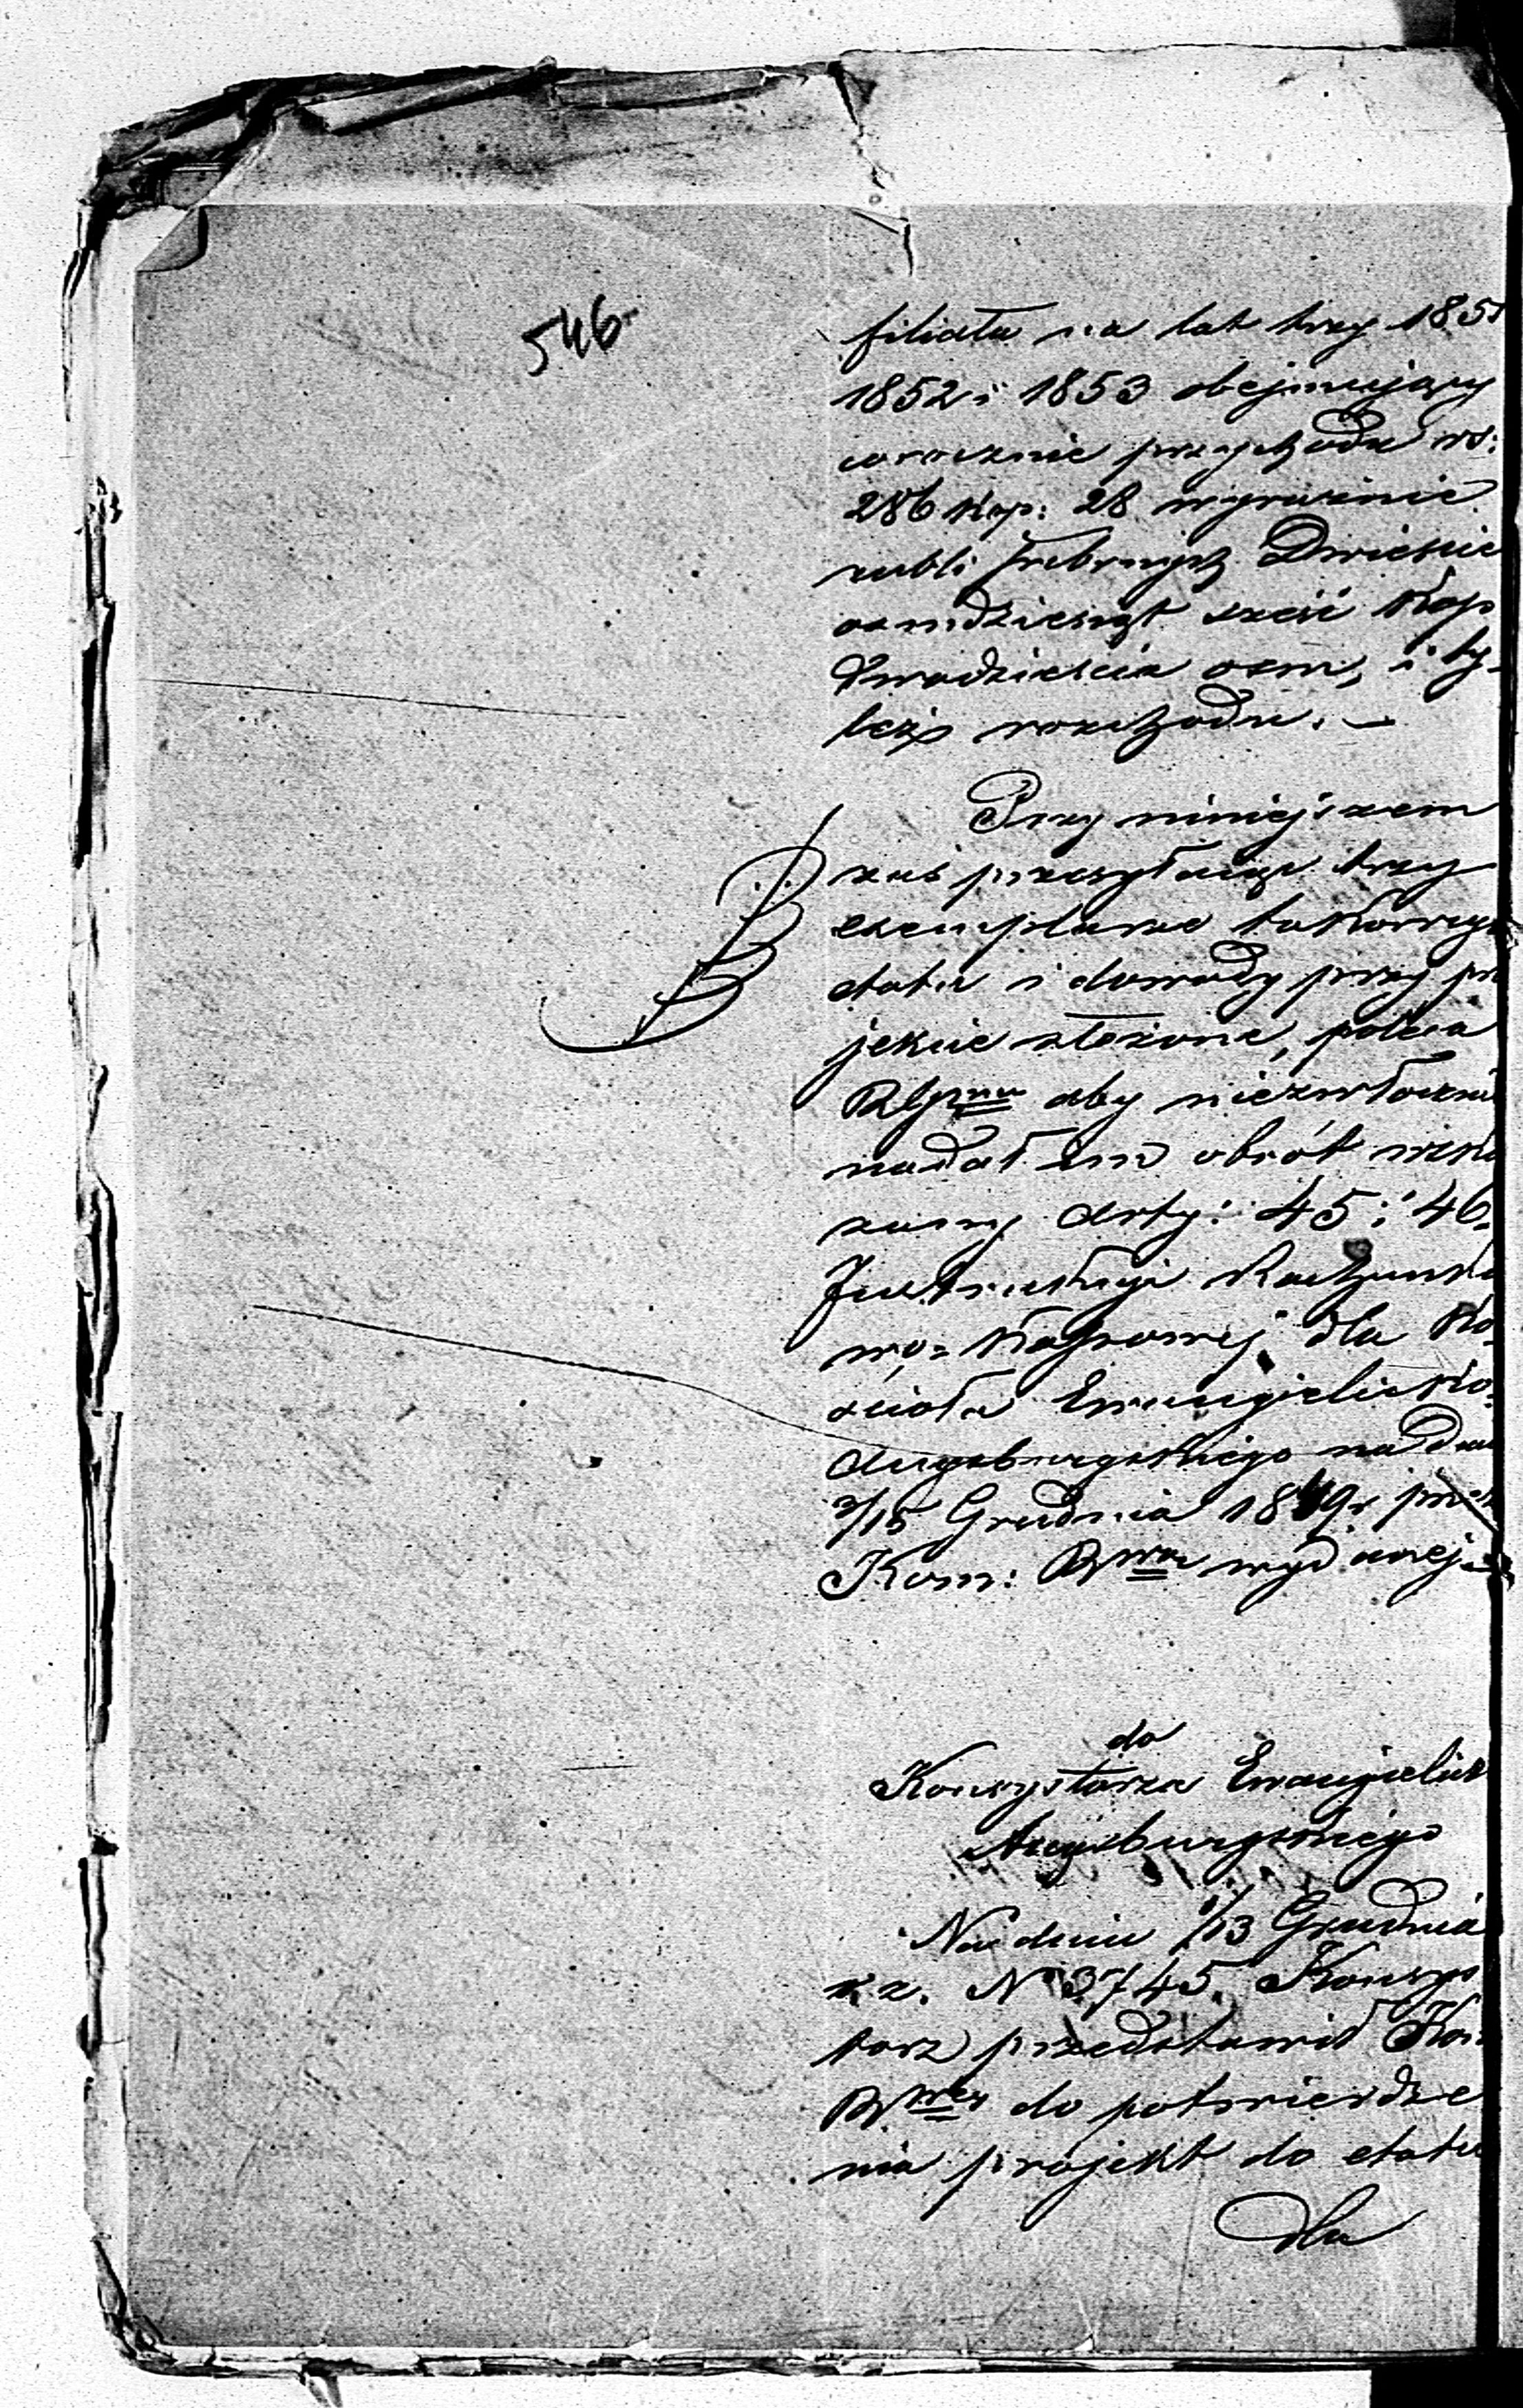 546
filiału na lat trzy 1851
1852 i 1853 obejmujący
corocznie przychodu rs:
286 kop: 28 wyraźnie
rubli srebrnych Dwieście
ośmdziesiąt sześć kop
Dwadzieścia ośm, i ty-
leż rozchodu. —
Przy niniejszem
zaś przesyłając trzy
exemplarze takowego
etatu i dowody przy pro
jekcie złożone, poleca
aby niezwłocznie
nadał im obrót wska
zany Arty: 45 i 46.
Instrukcji Rachunko
wo-Kassowej dla Ko-
ścioła Ewangielicko-
Augsburgskiego na dniu
3/15 Grudnia 1849 r przez
Kom: Rwą wydanej.
do
Konsystorza Ewangielick
Augsburgskiego
Na dniu 1/13 Grudnia
r. z. N 3745. Konsys
torz przedstawił Kom
Rwej do potwierdze
nia projekt do etatu
dla